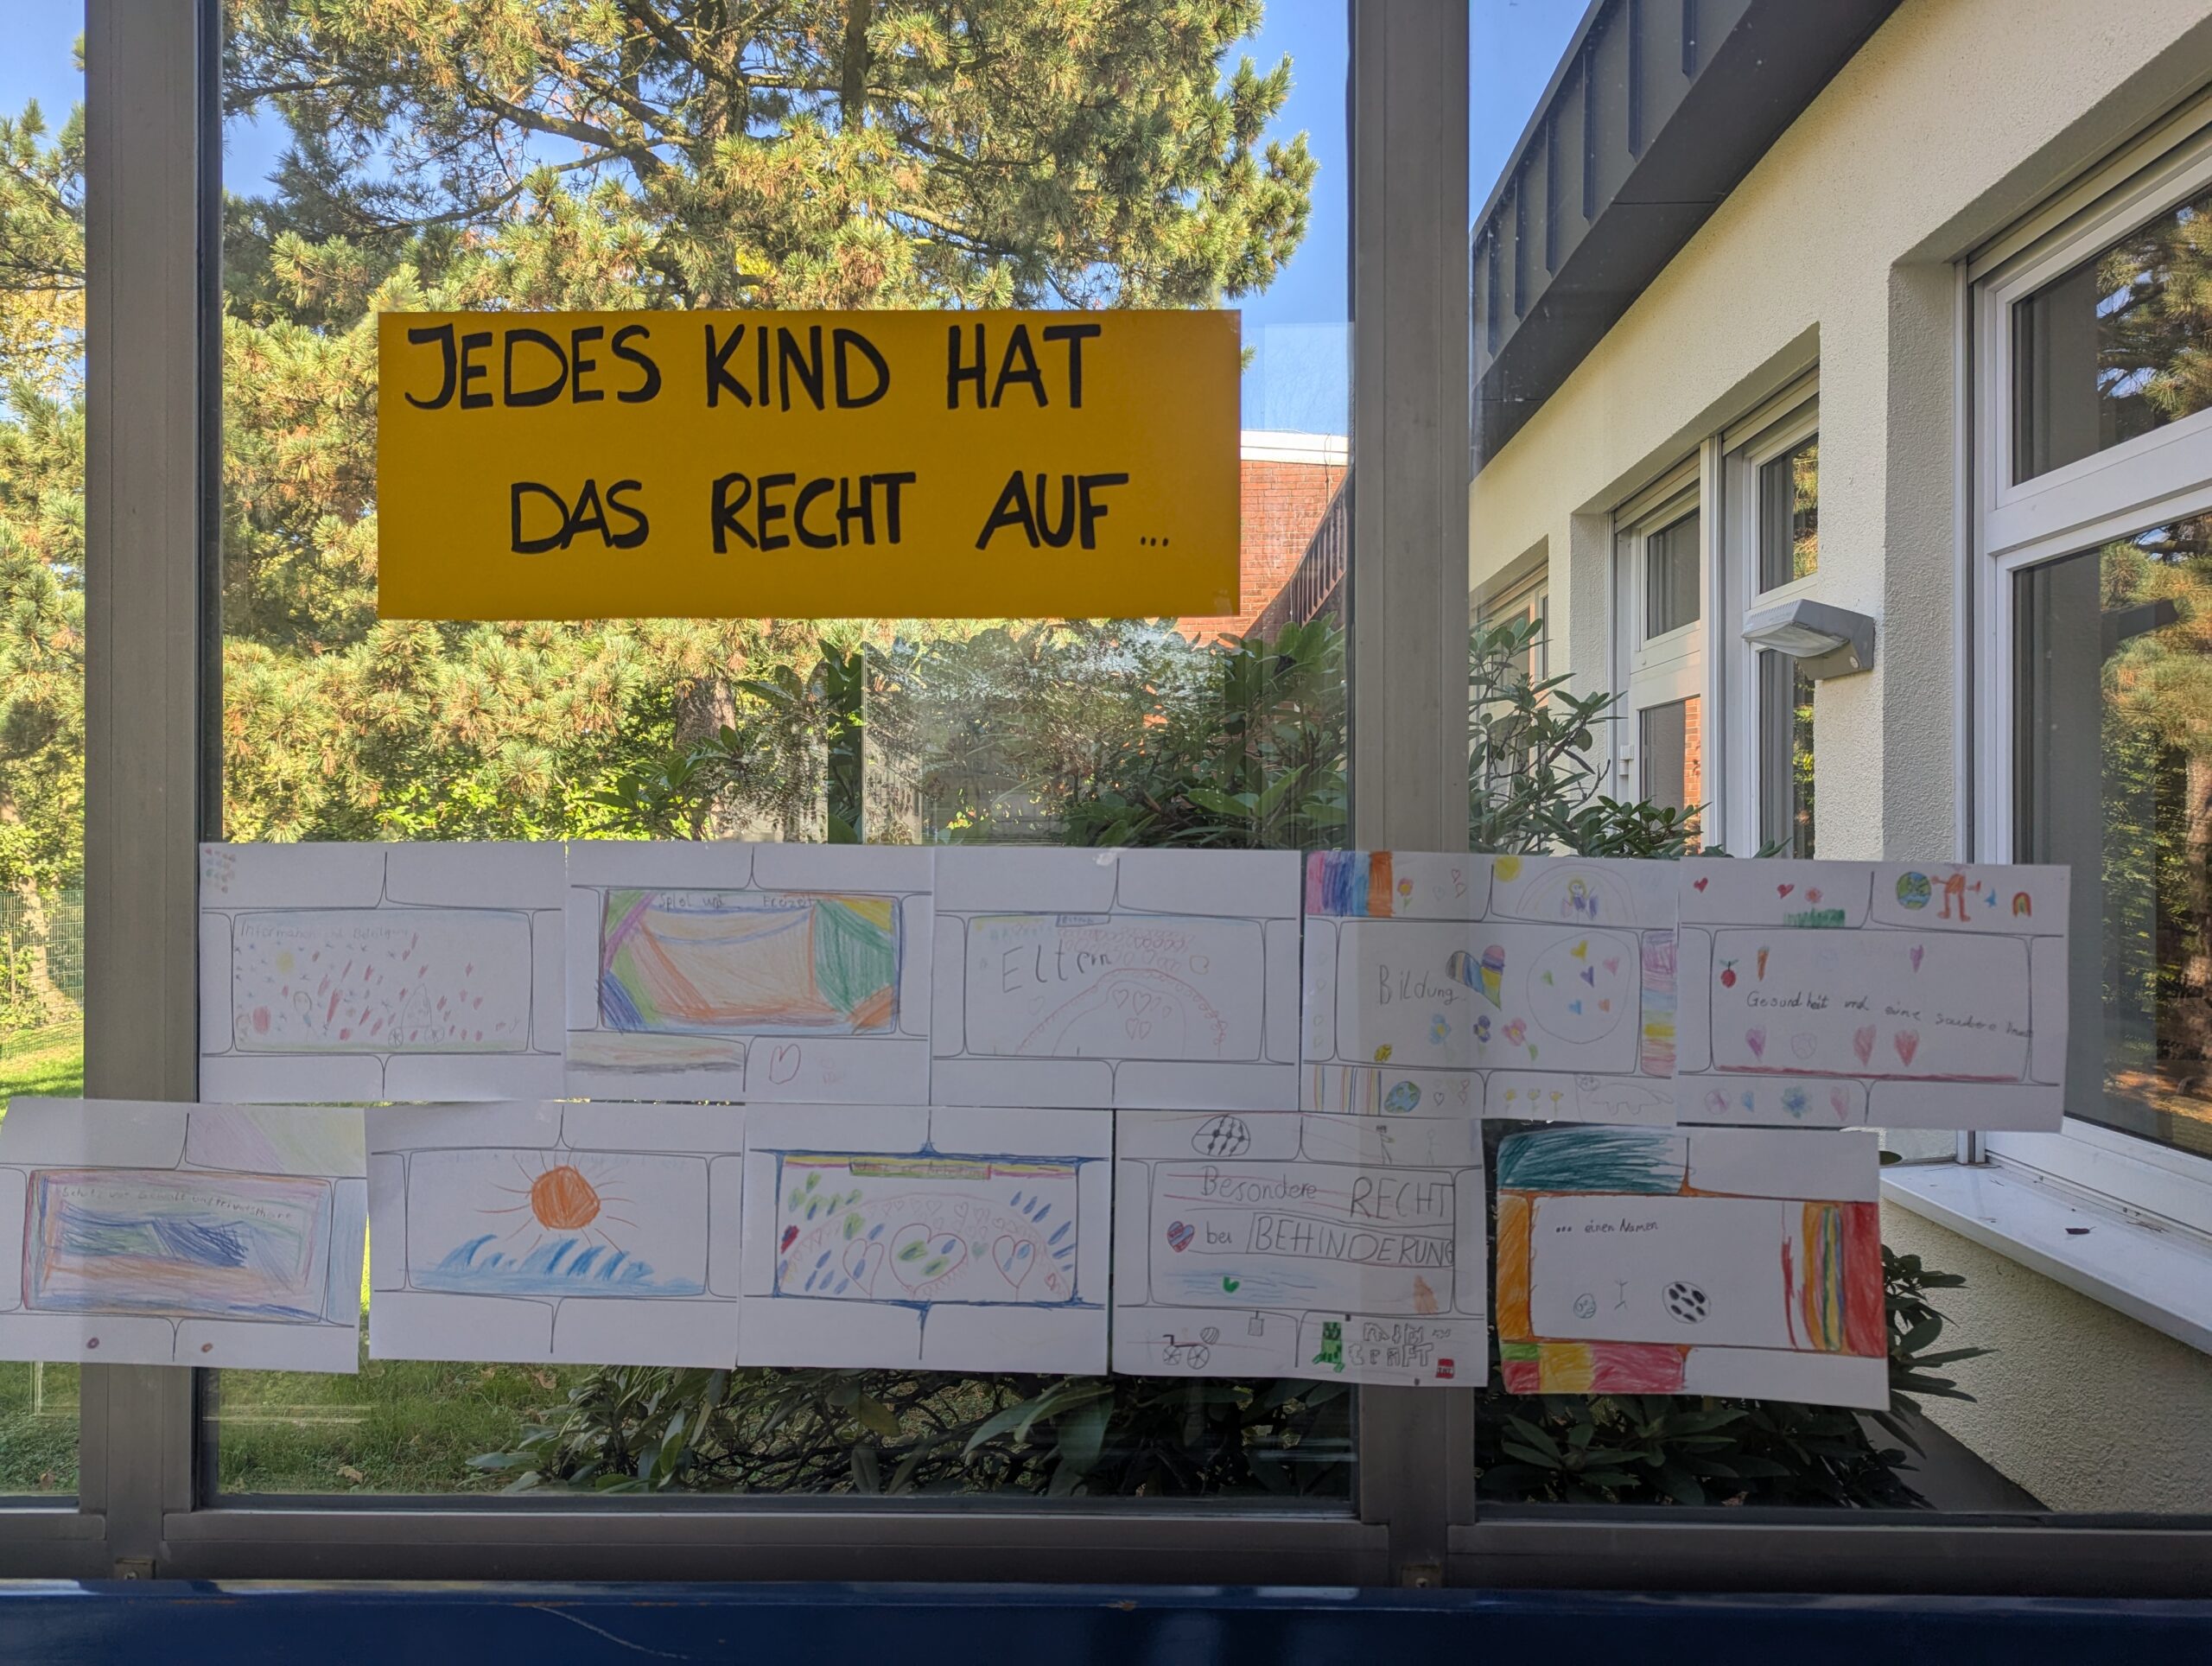 JEDES KIND HAT
DAS RECHT AUF...
Information und Beteiligung
Spiel und Freizeit
Eltern
Eltern
Bildung
Gesundheit und eine saubere
Schutz vor Gewalt und
Besondere RECHT
bei BEHINDERUNG
... einen Namen